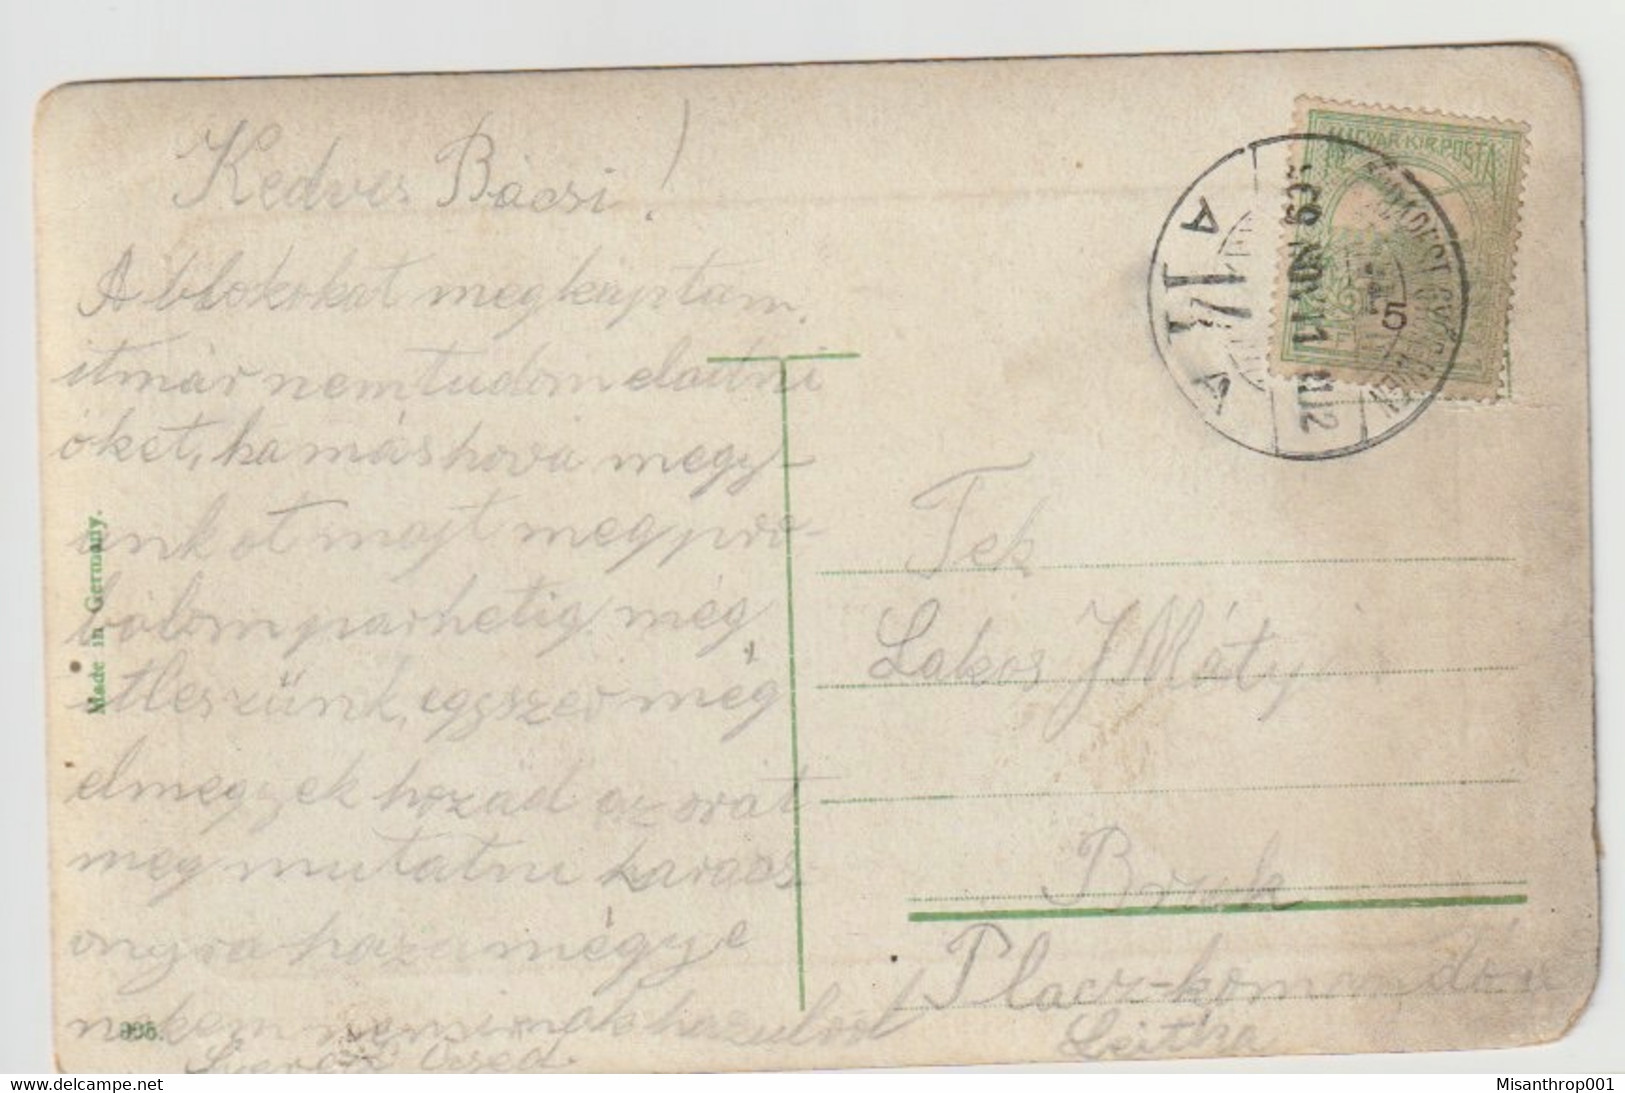 Kedves Bácsi!
A blokokat megkaptam,
itmár nemtudom eladni
őket, ha máshova megy-
únk ot majt megpro-
bálom parhetig még
itleszünk, egyszer még
elmegyek hozád az orát
meg mutatni karács-
onyra haza mégye
nekem nem irnak hazulrol
Öcséd.
Made in Germany.
995.
MAGYAR KIR. POSTA
BUDAPEST
909 NOV 11
A
A
5
Tek
Lakos J Mátyá
Bruk
Placz-komandón
Leitha
Misanthrop001